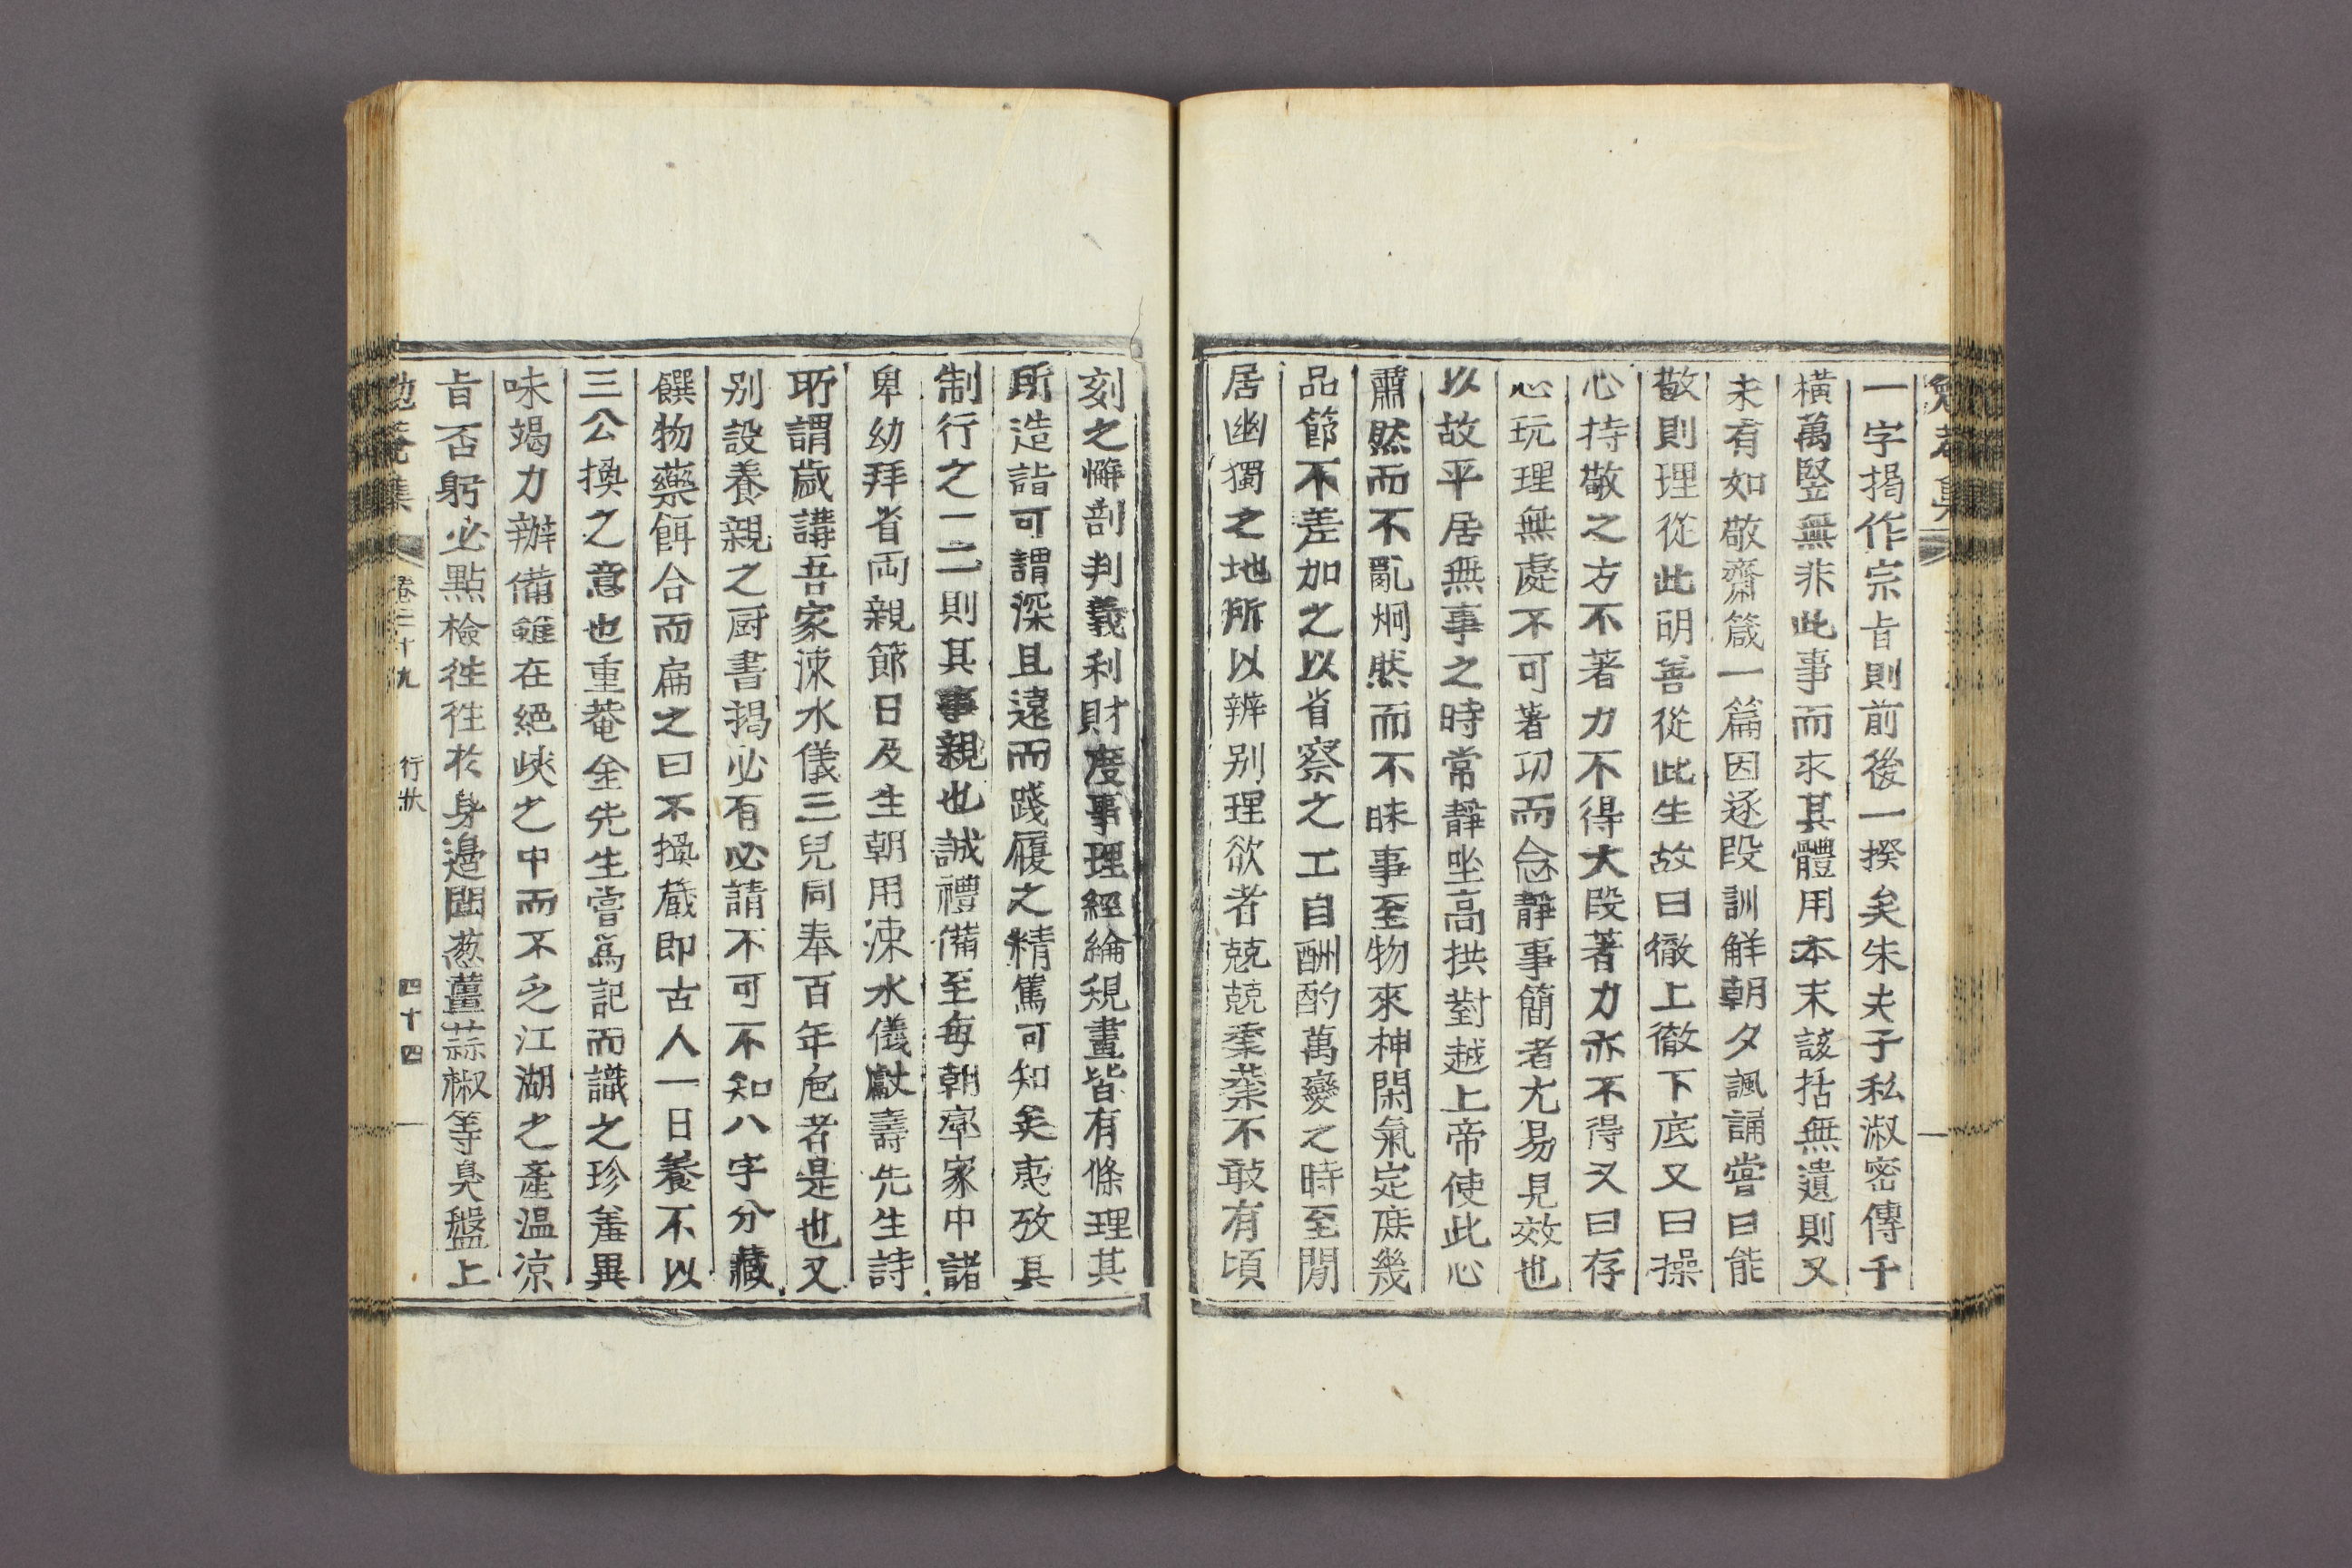 一字揭作宗旨則前後一揆矣朱夫子私淑密傳千
橫萬竪無非此事而求其體用本末該括無遺則又
未有如敬齋箴一篇因逐段訓解朝夕諷誦嘗曰能
敬則理從此明善從此生故曰徹上徹下底又曰操
心持敬之方不著力不得大段著力亦不得又曰存
心玩理無處不可著功而念靜事簡者尤易見效也
以故平居無事之時常靜坐高拱對越上帝使此心
肅然而不亂炯然而不昧事至物來神閑氣定庶幾
品節不差加之以省察之工自酬酌萬變之時至閒
居幽獨之地所以辨別理欲者兢兢業業不敢有頃
刻之懈剖判義利財度事理經綸規畫皆有條理其
所造詣可謂深且遠而踐履之精篤可知矣夷攷其
制行之一二則其事親也誠禮備至每朝率家中諸
卑幼拜省兩親節日及生朝用涑水儀獻壽先生詩
所謂歲講吾家涑水儀三兒同奉百年巵者是也又
別設養親之厨書揭必有必請不可不知八字分藏
饌物藥餌合而扁之曰不換藏卽古人一日養不以
三公換之意也重菴金先生嘗爲記而識之珍羞異
味竭力辦備雖在絕峽之中而不乏江湖之產溫凉
旨否躬必點檢徃徃於身邊聞葱薑蒜椒等臭盤上
勉菴集 卷二十九 行狀 四十四